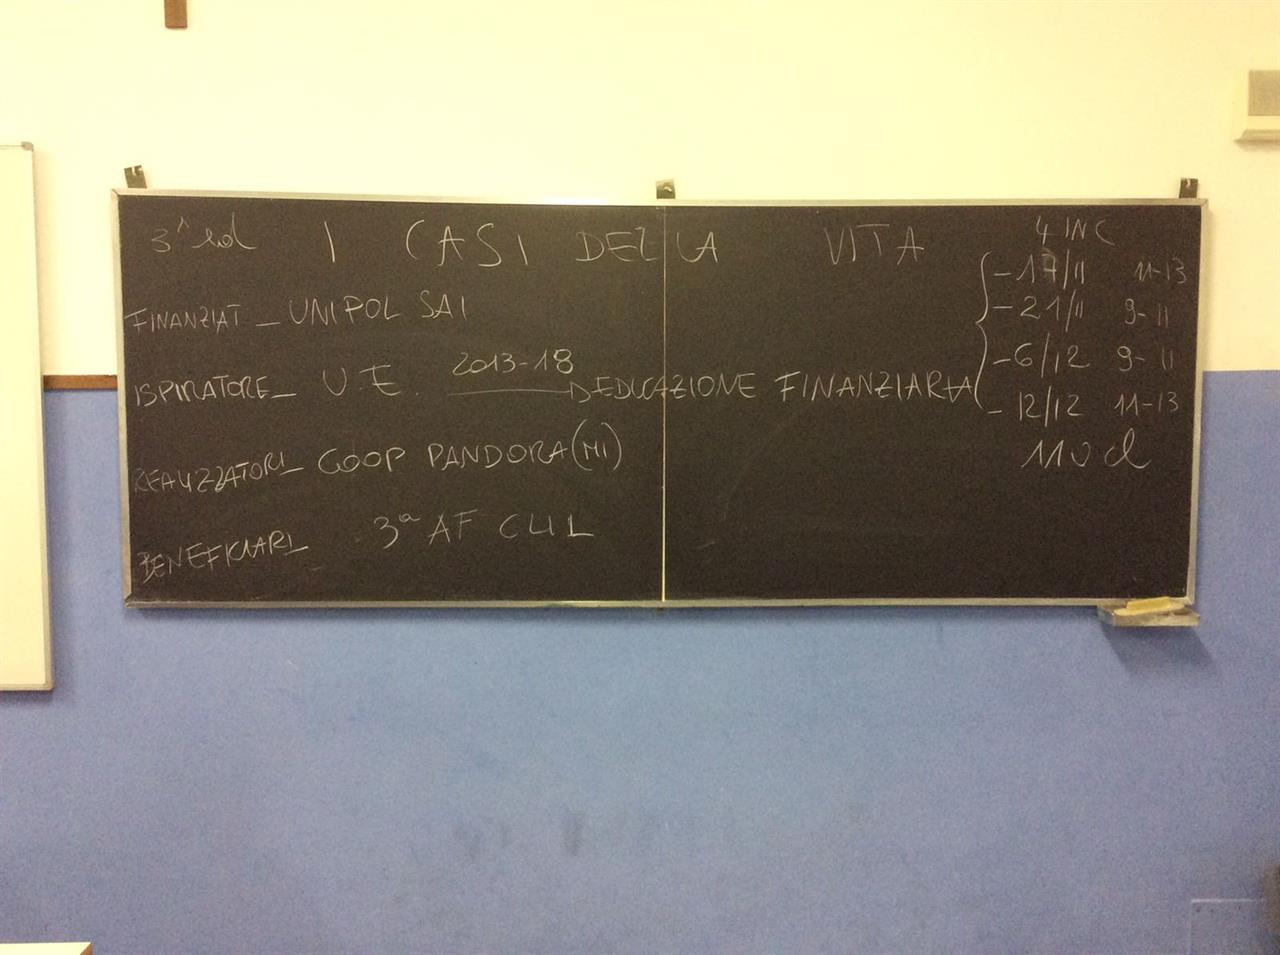 3^ ed I CASI DELLA VITA
FINANZIAT_ UNIPOL SAI
ISPIRATORE_ U.E. 2013-18 EDUCAZIONE FINANZIARIA
REALIZZATORI_ COOP PANDORA (MI)
BENEFICIARI_ 3ª AF CLIL
4 INC
- 17/11 11-13
- 21/11 9-11
- 6/12 9-11
- 12/12 11-13